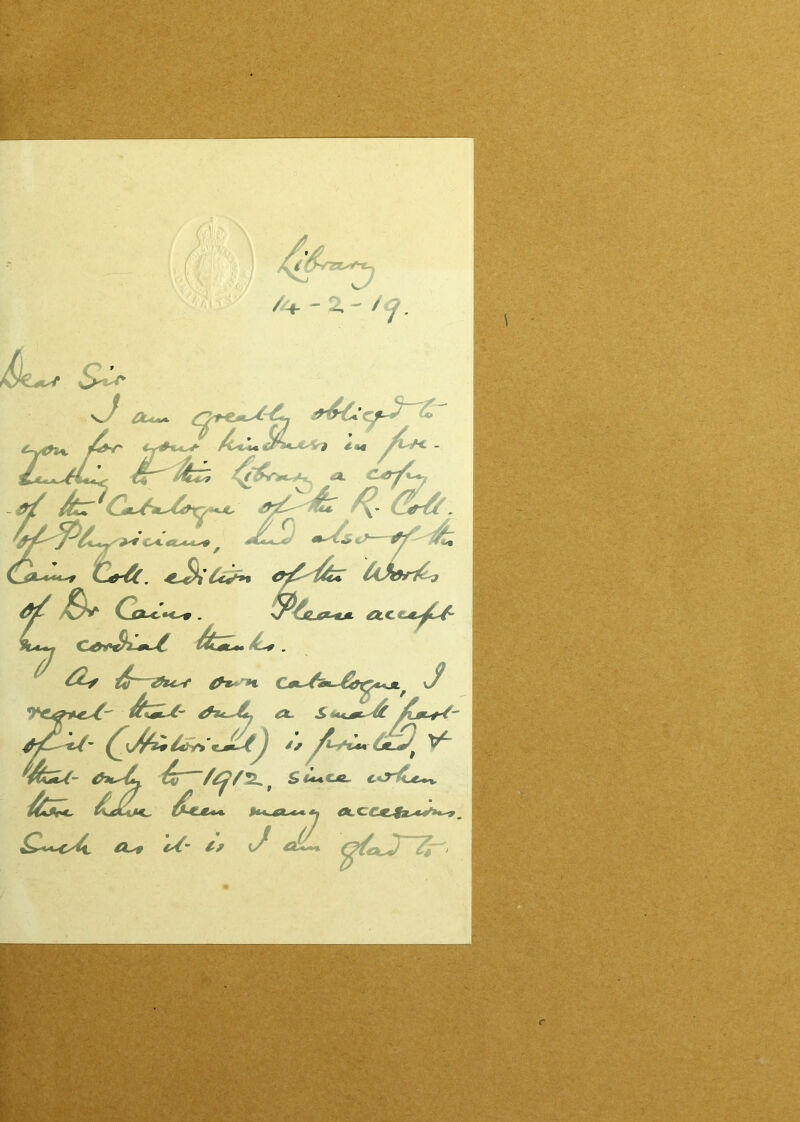 ADMIRALTY S.W.
Library
14-2-19.
Dear Sir
I am greatly obliged to
you for your kindness in pre-
senting to this Library a copy
of the Catalogue of the R. Coll.
of Physicians, and also of the
Caius Coll. edition of the Works
of Dr Caius. Please accept
my cordial thanks.
As to our own catalogue, I
regret that only a small part
of it (Historical) is printed, &
that only to 1912, since when
there have been many accessions.
Such as it is I am glad to